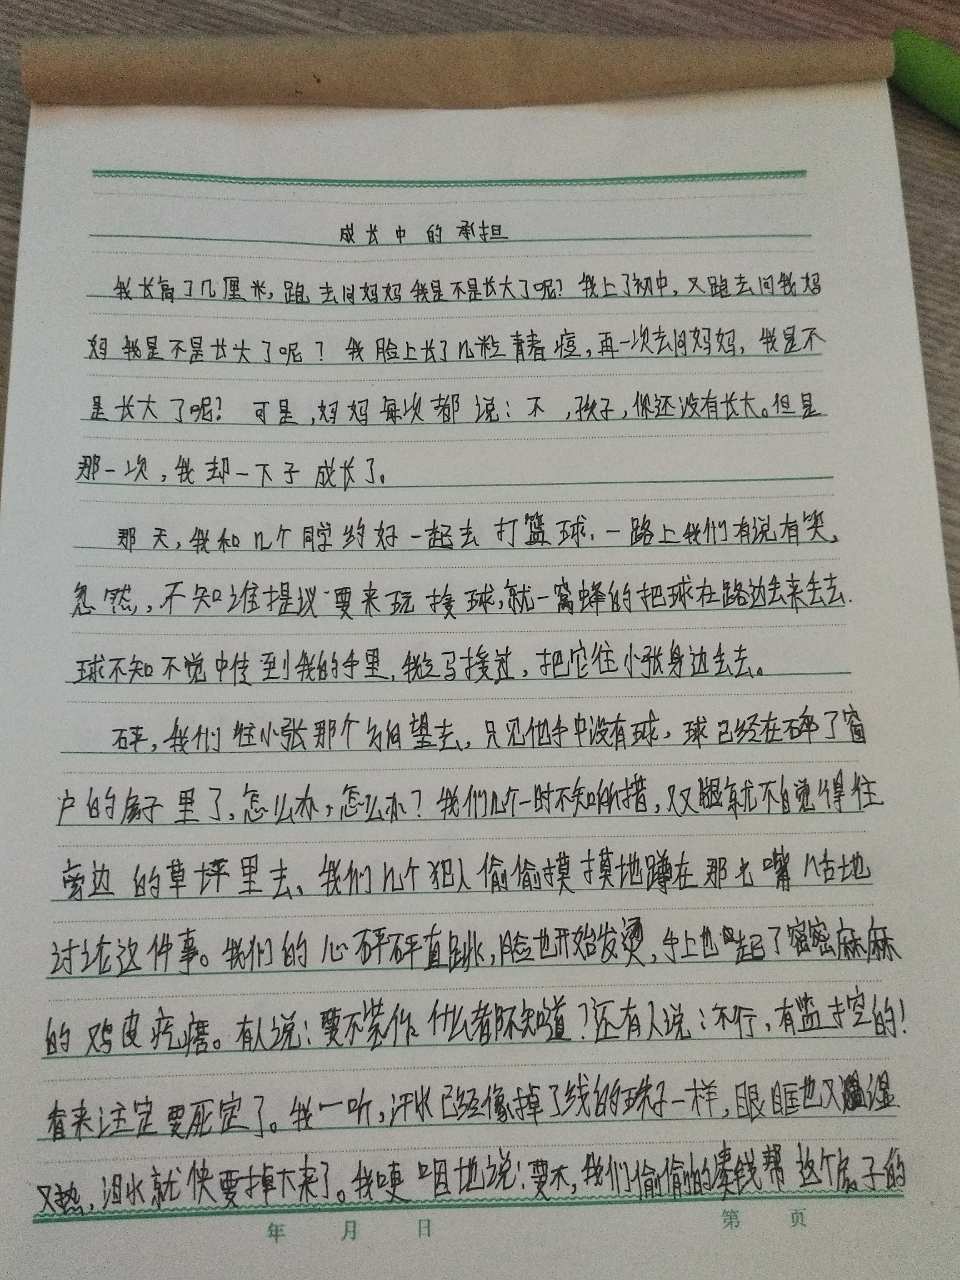 成长中的承担
我长高了几厘米,跑去问妈妈我是不是长大了呢?我上了初中,又跑去问我妈
妈我是不是长大了呢?我脸上长了几粒青春痘,再一次去问妈妈,我是不
是长大了呢?可是,妈妈每次都说:不,孩子,你还没有长大。但是
那一次,我却一下子成长了。
那天,我和几个同学约好一起去打篮球,一路上我们有说有笑,
忽然,不知谁提议要来玩接球,就一窝蜂的把球在路边丢来丢去.
球不知不觉中传到我的手里,我立马接过,把它往小张身边丢去。
砰,我们往小张那个方向望去,只见他手中没有球,球已经在碎了窗
户的房子里了,怎么办,怎么办?我们几个一时不知所措,双腿就不自觉得往
旁边的草坪里去、我们几个犯人偷偷摸摸地蹲在那七嘴八舌地
讨论这件事。我们的心砰砰直跳,脸也开始发烫,手上也起了密密麻麻
的鸡皮疙瘩。有人说:要不装作什么都不知道?还有人说:不行,有监控的!
看来注定要死定了。我一听,汗水已经像掉了线的珠子一样,眼眶也又湿
又热,泪水就快要掉下来了。我哽咽地说:要不,我们偷偷的凑钱帮这个房子的
年 月 日
第 页